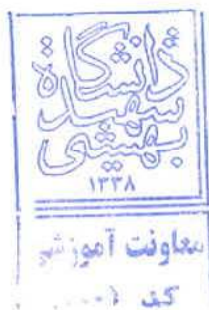 دانشگاه
شهید
بهشتی
۱۳۳۸
معاونت آموزشی
کد